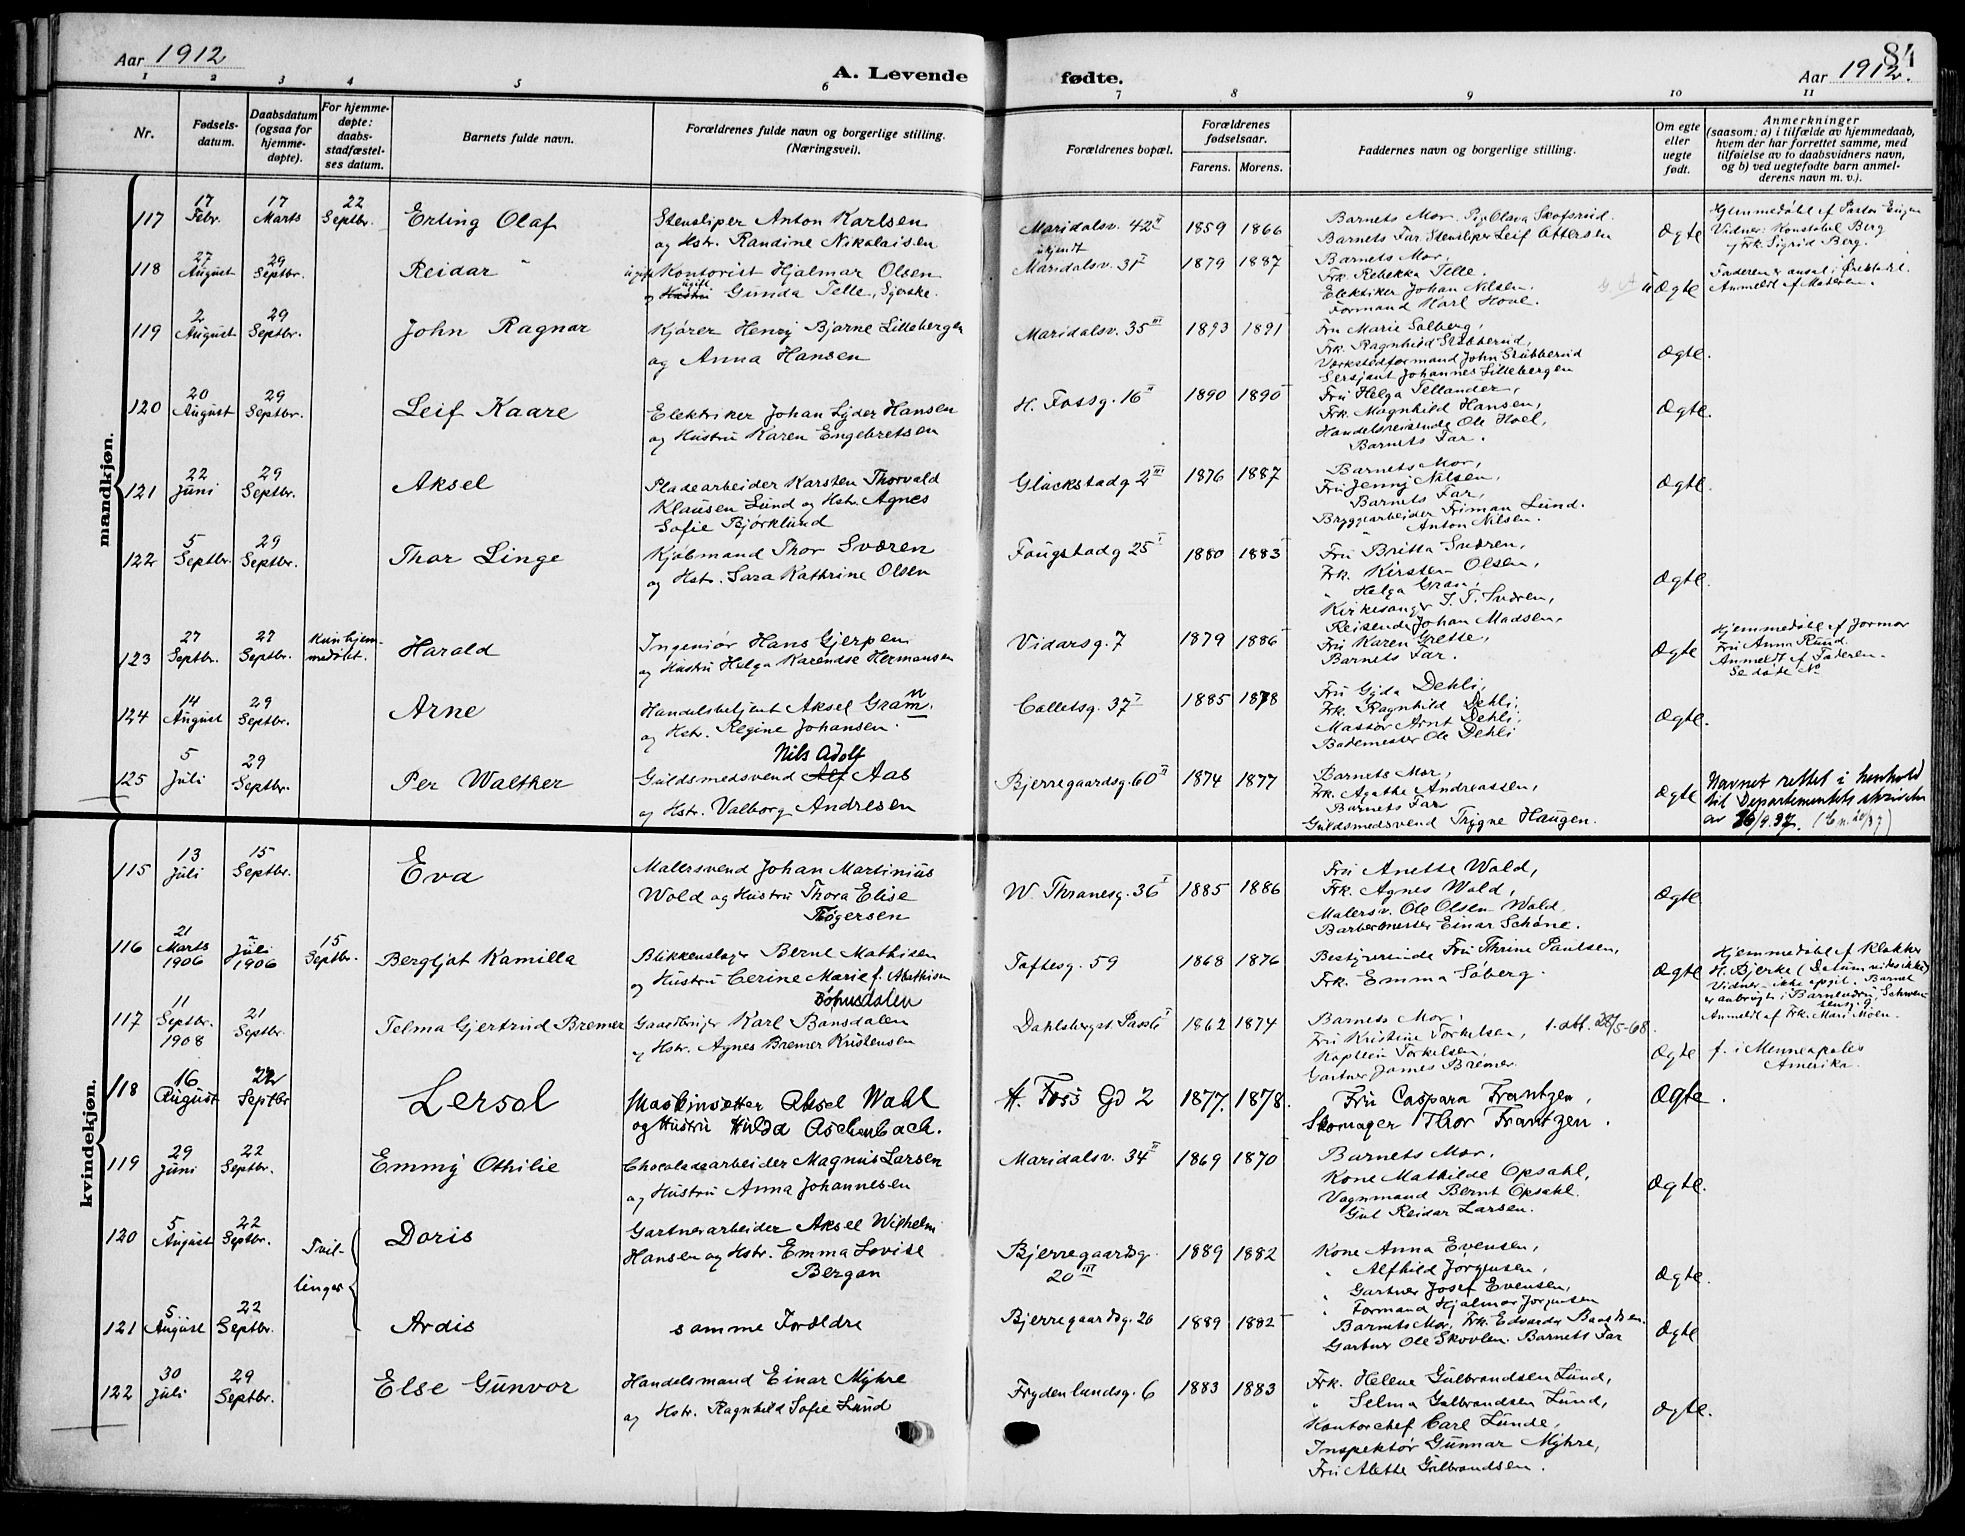 84
Aar 1912
A. Levende fødte.
Aar 1912.
1 2 3 4 5 6 7 8 9 10 11
Nr.
Fødsels-
datum.
Daabsdatum
(ogsaa for
hjemme-
døpte).
For hjemme-
døpte:
daabs-
stadfæstel-
ses datum.
Barnets fulde navn.
Forældrenes fulde navn og borgerlige stilling.
(Næringsvei).
Forældrenes bopæl.
Forældrenes
fødselsaar.
Farens. Morens.
Faddernes navn og borgerlige stilling.
Om egte
eller
uegte
født.
Anmerkninger
(saasom: a) i tilfælde av hjemmedaab,
hvem der har forrettet samme, med
tilføielse av to daabsvidners navn,
og b) ved uegtefødte barn anmel-
derens navn m. v.).
mandkjøn.
117
17
Febr.
17
Marts
22
Septbr.
Erling Olaf
Stensliper Anton Karlsen
og Hstr. Randine Nikolaisen
Maridalsv. 42 II
1859 1866
Barnets Mor, Pig Olava Skofsrud.
Barnets Far Stensliper Leif Ottersen
Ægte
Hjemmedøbt af Pastor
Vidner: Konstabel Berg
og Frk. Sigrid Berg.
118
27
August
29
Septbr.
Reidar
ugift Kontorist Hjalmar Olsen
og Hustru ugift Gunda Telle, Syerske.
ukjendt
Maridalsv. 31 I
1879 1887
Barnets Mor,
Frk. Rebekka Telle.
Elektriker Johan Nilsen.
Formand Karl Hove.
uÆgte
Anmeldt af Moderen.
119
2
August
29
Septbr.
John Ragnar
Kjører Henry Bjarne Lillebergen
og Anna Hansen
Maridalsv. 35 III
1893 1891
Fru Marie Solberg,
Frk. Ragnhild Stubberud,
Værkstedformand John Stubberud
Sersjant Johannes Lillebergen
Ægte.
120
20
August
29
Septbr.
Leif Kaare
Elektriker Johan Lyder Hansen
og Hustru Karen Engebretsen
H. Fossg. 16 II
1890 1890
Fru Helga Tellander,
Frk. Magnhild Hansen,
Handelsreisende Ole Hoel,
Barnets Far.
Ægte.
121
22
Juni
29
Septbr.
Aksel
Pladearbeider Karsten Thorvald
Klausen Lund og Hstr. Agnes
Sofie Bjørklund
Glückstadg 2 III
1876 1887
Barnets Mor,
Fru Jenny Nilsen,
Barnets Far,
Bryggearbeider Friman Lund.
Anton Nilsen.
Ægte.
122
5
Septbr.
29
Septbr.
Thor Linge
Kjøbmand Thor Sværen
og Hstr. Sara Kathrine Olsen
Fougstadg 25 I
1880 1883
Fru Britta Sværen,
Frk. Kirsten Olsen,
" Helga Gran,
Kirkesanger T. T. Sværen,
Reisende Johan Madsen,
Ægte.
123
27
Septbr.
27
Septbr.
Kun hjem-
medøbt.
Harald
Ingeniør Hans Gjerpen
og Hustru Helga Karendse Hermansen
Vidarsg. 7
1879 1886
Fru Karen Grette,
Barnets Far.
Ægte
Hjemmedøbt af Jormor
Fru Anna Ruud.
Anmeldt af Faderen.
Se døde No
124
14
August
29
Septbr.
Arne
Handelsbetjent Aksel Gramn.
og Hstr. Regine Johansen.
Colletsg. 37 I
1885 1878
Fru Gyda Dehli,
Frk. Ragnhild Dehli,
Massør Arnt Dehli,
Bademester Ole Dehli
Ægte.
125
5
Juli
29
Septbr.
Per Walther
Nils Adolf
Guldsmedsvend Alf Aas
og Hstr. Valborg Andresen
Bjerregaardsg. 60 II
1874 1877
Barnets Mor,
Frk. Agathe Andreassen,
Barnets Far
Guldsmedsvend Trygve Haugen.
Ægte
Navnet rettet i henhold
til Departementets skrivelse
av 26/9.37.
kvindekjøn.
115
13
Juli
15
Septbr.
Eva
Malersvend Johan Martinius
Wold og Hustru Thora Elise
Bøgersen
W. Thranesg. 36 I
1885 1886
Fru Anette Wold,
Frk. Agnes Wold,
Malersv. Ole Olsen Wold,
Barbermester Einar Schöne.
Ægte
116
21
Marts
1906
Juli
1906
15
Septbr.
Bergljot Kamilla
Blikkenslager Bernt Mathisen
og Hustru Cerine Marie f. Mathisen
Toftesg. 59
1868 1876
Bestyrerinde Fru Thrine Paulsen,
Frk. Emma Soberg.
Ægte
Hjemmedøbt af Klokker
H. Bjerke (Datum vides ikke)
Vidner ikke opgit. Barnet
er anbragt i
Anmeldt af Frk. Mari Moen.
117
11
Septbr.
1908
21
Septbr.
Telma Gjertrud Bremer
Bohnsdalen
Gaardbruger Karl Bonsdalen
og Hstr. Agnes Bremer Kristensen
Dahlsbergst. Pass 6 I
1862 1874
Barnets Mor,
Fru Kristine Torkelsen,
Kaptein Torkelsen,
Gartner James Bremer
1. att. 28/5-68.
Ægte
f. i Menneapoles
Amerika.
118
16
August
22
Septbr
Lersol
Maskinsetter Aksel Wahl
og Hustru Hilda Aschenbach.
H. Foss Gd 2
1877. 1878.
Fru Caspara Frantzen,
Skomager Thor Frantzen.
Ægte.
119
29
Juni
22
Septbr.
Emmy Othilie
Chocoladearbeider Magnus Larsen
og Hustru Anna Johannesen
Maridalsv. 34 II
1869 1870
Barnets Mor,
Kone Mathilde Opsahl,
Vognmand Bernt Opsahl.
Gut Reidar Larsen.
Ægte.
120
5
August
22
Septbr.
Tvil-
linger
Doris
Gartnerarbeider Aksel Wilhelm
Hansen og Hstr. Emma Lovise
Bergan
Bjerregaardsg.
20 III
1889 1882
Kone Anna Evensen,
" Alfhild Jørgensen,
Gartner Josef Evensen,
Formand Hjalmar Jørgensen
Ægte.
121
5
August
22
Septbr.
Ardis
samme Forældre
Bjerregaardsg. 20
1889 1882
Barnets Mor, Frk. Edvarda Baardsen.
Gartner Ole Skovlen. Barnets Far
Ægte
122
30
Juli
29
Septbr.
Else Gunvor
Handelsmand Einar Myhre
og Hstr. Ragnhild Sofie Lund
Frydenlundsg. 6
1883 1883
Frk. Helene Gulbrandsen Lund,
" Selma Gulbrandsen Lund,
Kontorchef Carl Lunde,
Inspektør Gunnar Myhre,
Fru Alette Gulbrandsen.
Ægte.